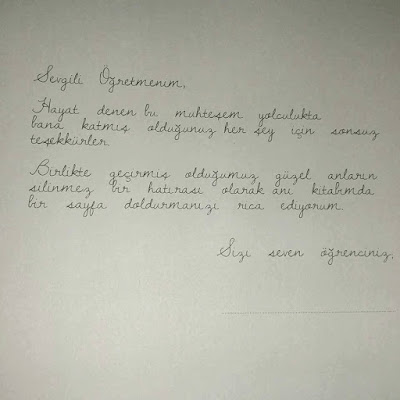 Sevgili Öğretmenim,
Hayat denen bu muhteşem yolculukta
bana katmış olduğunuz her şey için sonsuz
teşekkürler.
Birlikte geçirmiş olduğumuz güzel anların
silinmez bir hatırası olarak anı kitabımda
bir sayfa doldurmanızı rica ediyorum.
Sizi seven öğrenciniz,